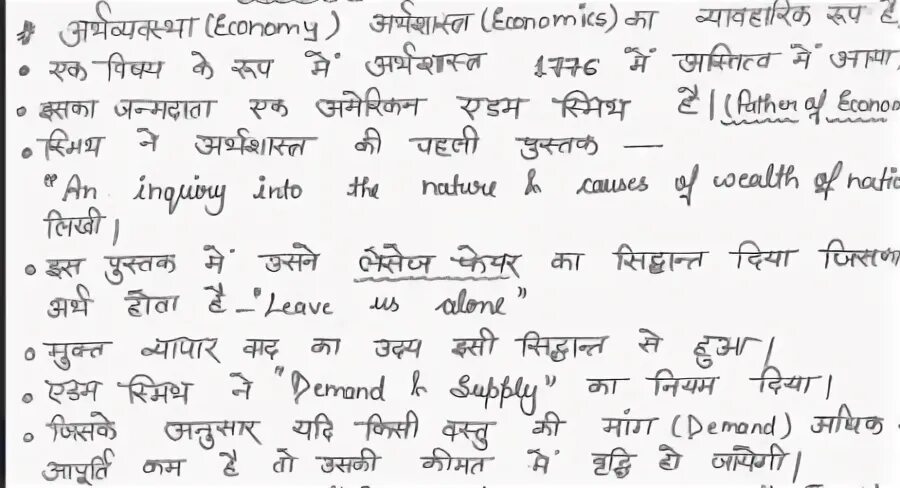 # अर्थव्यवस्था (Economy) अर्थशास्त्र (Economics) का व्यावहारिक रूप है
• एक विषय के रूप में अर्थशास्त्र 1776 में अस्तित्व में आया
• इसका जन्मदाता एक अमेरिकन एडम स्मिथ है। (Father of Econo
• स्मिथ ने अर्थशास्त्र की पहली पुस्तक —
"An inquiry into the nature & causes of wealth of natio
लिखी।
• इस पुस्तक में उसने लेसेज फेयर का सिद्धान्त दिया जिसका
अर्थ होता है – "Leave us alone"
• मुक्त व्यापार वाद का उदय इसी सिद्धान्त से हुआ।
• एडम स्मिथ ने "Demand & Supply" का नियम दिया।
• जिसके अनुसार यदि किसी वस्तु की मांग (Demand) अधिक
आपूर्ति कम है तो उसकी कीमत में वृद्धि हो जायेगी।